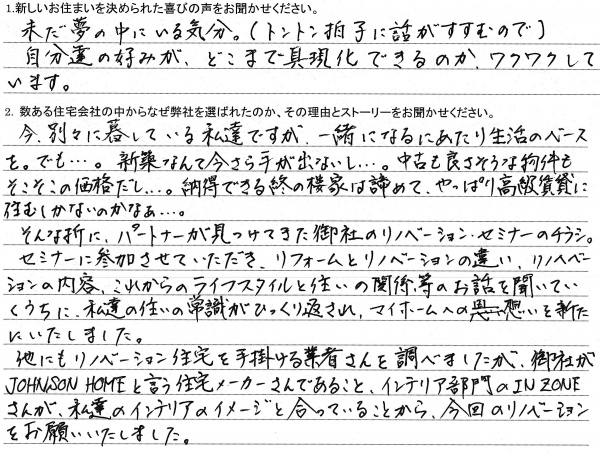 1.新しいお住まいを決められた喜びの声をお聞かせください。
未だ夢の中にいる気分。(トントン拍子に話がすすむので)
自分達の好みが、どこまで具現化できるのか、ワクワクして
います。
2. 数ある住宅会社の中からなぜ弊社を選ばれたのか、その理由とストーリーをお聞かせください。
今、別々に暮している私達ですが、一緒になるにあたり生活のベース
を。でも…。新築なんて今さら手が出ないし…。中古も良さそうな物件も
そこそこの価格だし…。納得できる終の棲家は諦めて、やっぱり高級賃貸に
住むしかないのかなぁ…。
そんな折に、パートナーが見つけてきた御社のリノベーション・セミナーのチラシ。
セミナーに参加させていただき、リフォームとリノベーションの違い、リノベー
ションの内容、これからのライフスタイルと住いの関係、等のお話を聞いてい
くうちに、私達の住いの常識がひっくり返され、マイホームへの想いを新た
にいたしました。
他にもリノベーション住宅を手掛ける業者さんを調べましたが、御社が
JOHNSON HOMEと言う住宅メーカーさんであること、インテリア部門のIN ZONE
さんが、私達のインテリアのイメージと合っていることから、今回のリノベーション
をお願いいたしました。